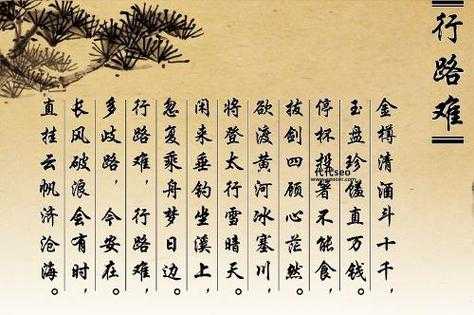 行路难
金樽清酒斗十千，
玉盘珍馐直万钱。
停杯投箸不能食，
拔剑四顾心茫然。
欲渡黄河冰塞川，
将登太行雪暗天。
闲来垂钓坐溪上，
忽复乘舟梦日边。
行路难，行路难，
多歧路，今安在。
长风破浪会有时，
直挂云帆济沧海。
代代seo